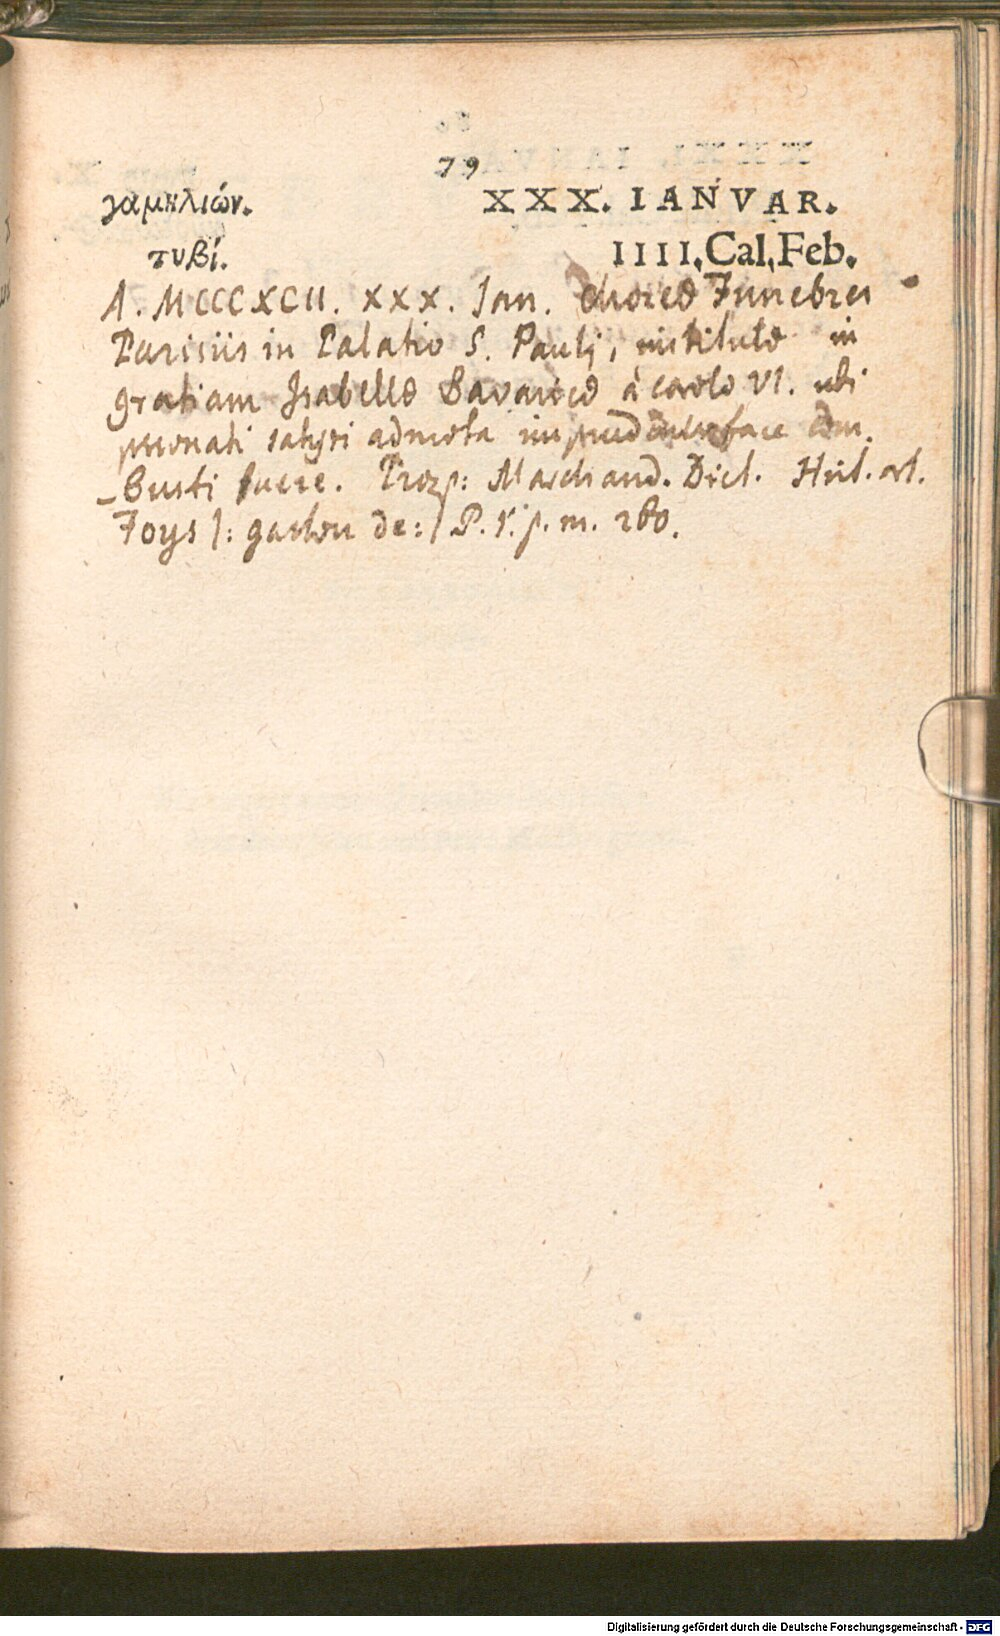 79
γαμηλιών. XXX. IANVAR.
τυβί. IIII. Cal. Feb.
A. MCCCXCII. XXX. Jan. Choreæ Funebres
Parisiis in Palatio S. Pauli, institutæ in
gratiam Isabellæ Bavaricæ à Carolo VI. ubi
personati satyri admota face com-
-busti fuere. Prosp: Marchand. Dict. Hist. art.
Foys |: gaston de: | P. 1. p. m. 260.
Digitalisierung gefördert durch die Deutsche Forschungsgemeinschaft - DFG